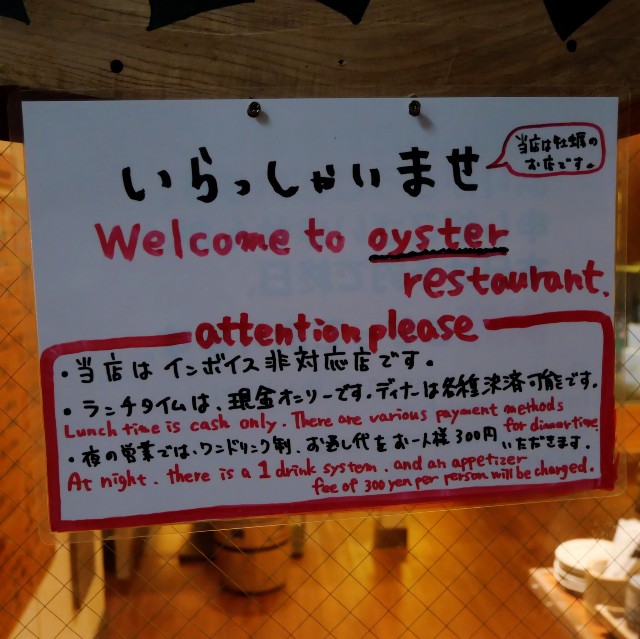 いらっしゃいませ
当店は牡蠣の
お店です。
Welcome to oyster
restaurant.
attention please
・当店はインボイス非対応店です。
・ランチタイムは、現金オンリーです。ディナーは各種決済可能です。
Lunch time is cash only. There are various payment methods
for dinnar time.
・夜の営業では、ワンドリンク制、お通し代をお一人様300円いただきます。
At night. there is a 1 drink system. and an appetizer
fee of 300 yen per person will be charged.